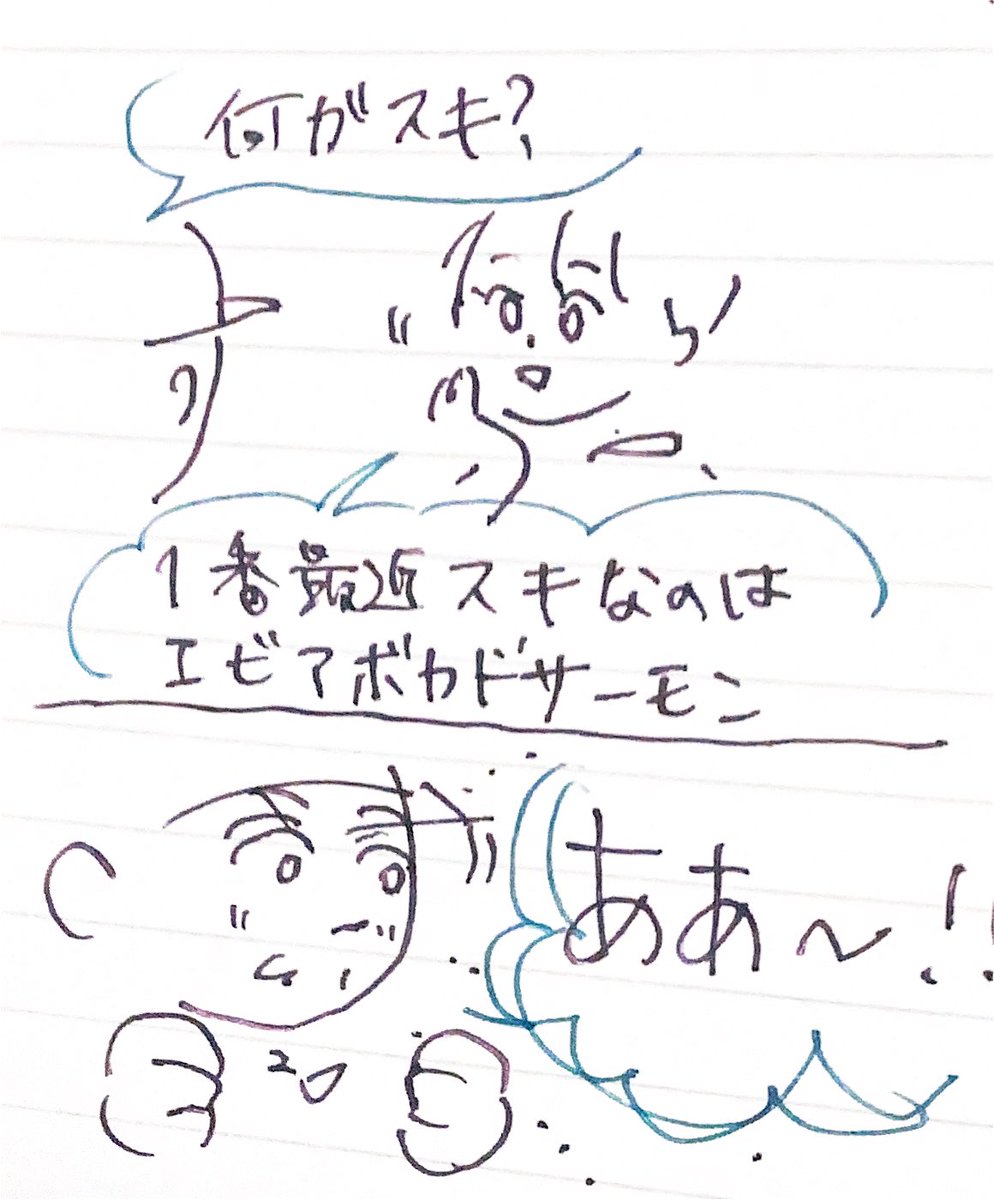 何がスキ?
1番最近スキなのは
エビアボカドサーモン
ああ〜!!